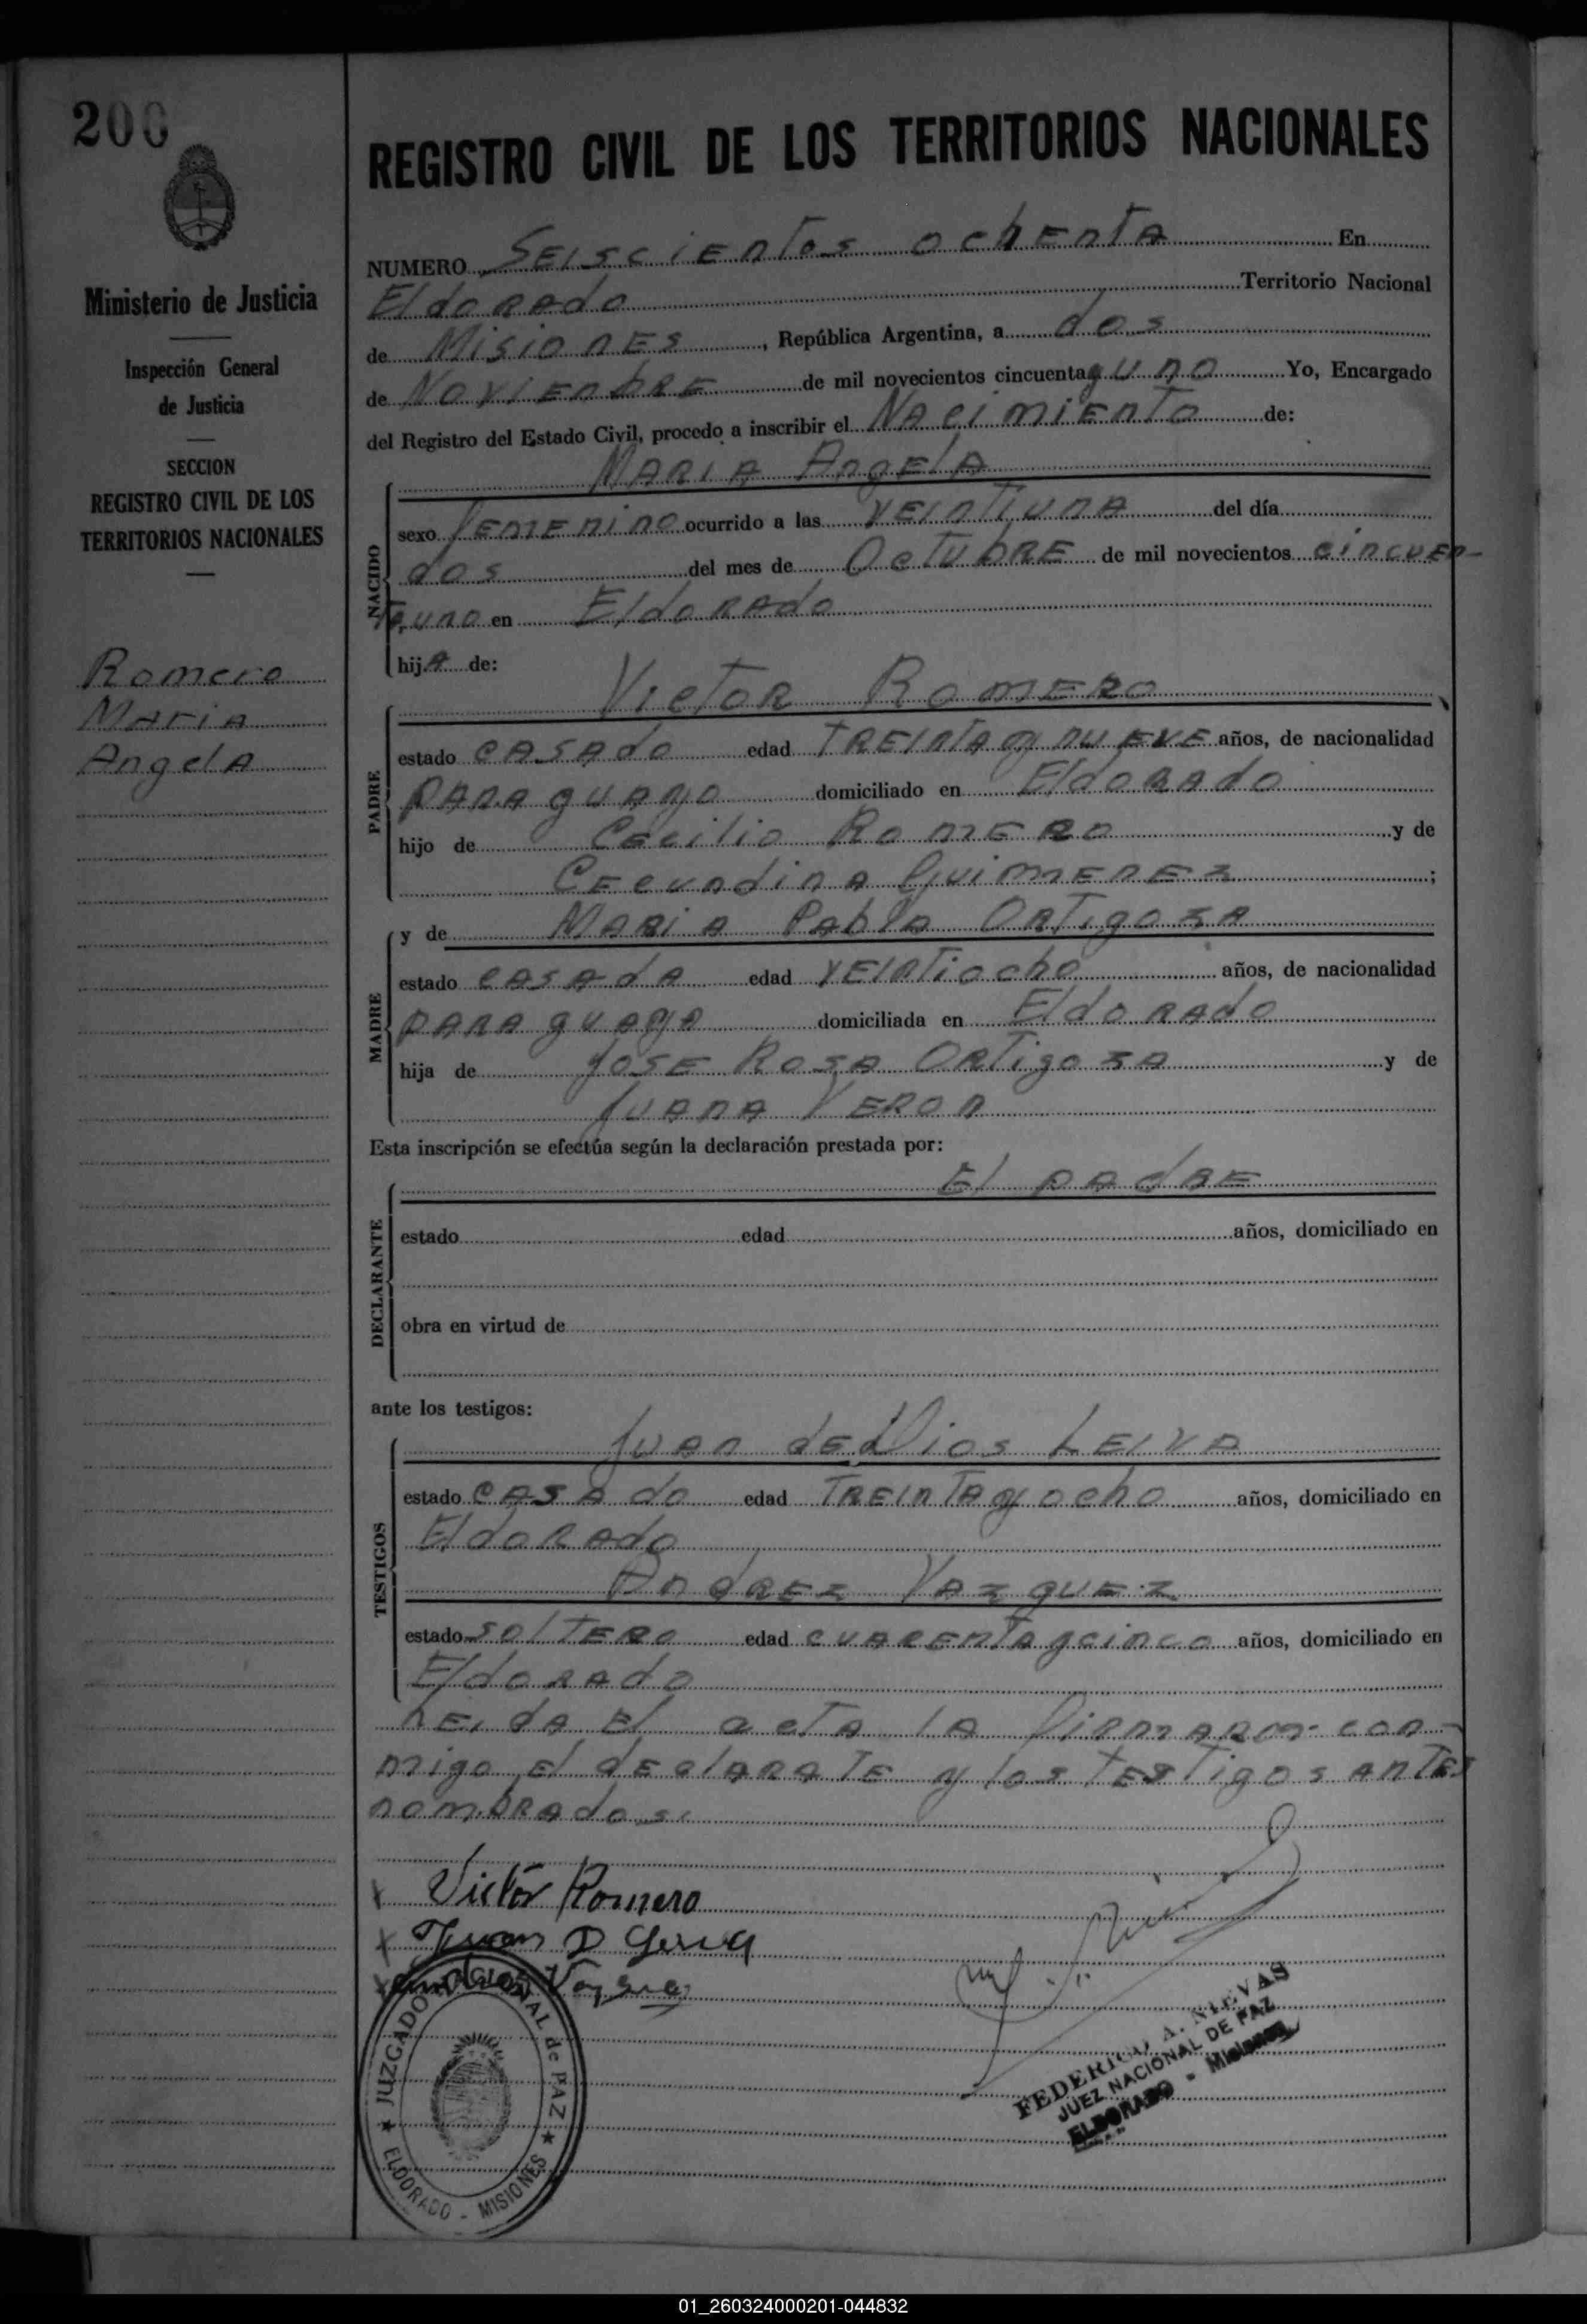 200
Ministerio de Justicia
Inspección General
de Justicia
SECCION
REGISTRO CIVIL DE LOS
TERRITORIOS NACIONALES
Romero
Maria
Angela
REGISTRO CIVIL DE LOS TERRITORIOS NACIONALES
NUMERO Seiscientos ochenta En
Eldorado Territorio Nacional
de Misiones, República Argentina, a dos
de Noviembre de mil novecientos cincuenta y uno Yo, Encargado
del Registro del Estado Civil, procedo a inscribir el Nacimiento de:
Maria Angela
NACIDO
sexo femenino ocurrido a las veintiuna del día
dos del mes de Octubre de mil novecientos cincuen-
ta y uno en Eldorado
hija de:
Victor Romero
PADRE
estado casado edad treinta y nueve años, de nacionalidad
paraguayo domiciliado en Eldorado
hijo de Cecilio Romero y de
Cecundina Guimenez ;
MADRE
y de Maria Pabla Ortigoza
estado casada edad veintiocho años, de nacionalidad
paraguaya domiciliada en Eldorado
hija de Jose Rosa Ortigoza y de
Juana Veron
Esta inscripción se efectúa según la declaración prestada por:
El padre
DECLARANTE
estado edad años, domiciliado en
obra en virtud de
ante los testigos:
Juan de Dios Leiva
TESTIGOS
estado casado edad treinta y ocho años, domiciliado en
Eldorado
Andrez Vazquez
estado soltero edad cuarenta y cinco años, domiciliado en
Eldorado
Leida el acta la firmaron con-
migo el declarate y los testigos antes
nombrados.
x Victor Romero
x Juan D Leiva
x Andres Vazquez
JUZGADO NACIONAL de PAZ
ELDORADO - MISIONES
FEDERICO A. NIEVAS
JUEZ NACIONAL DE PAZ
ELDORADO - Misiones
01_260324000201-044832